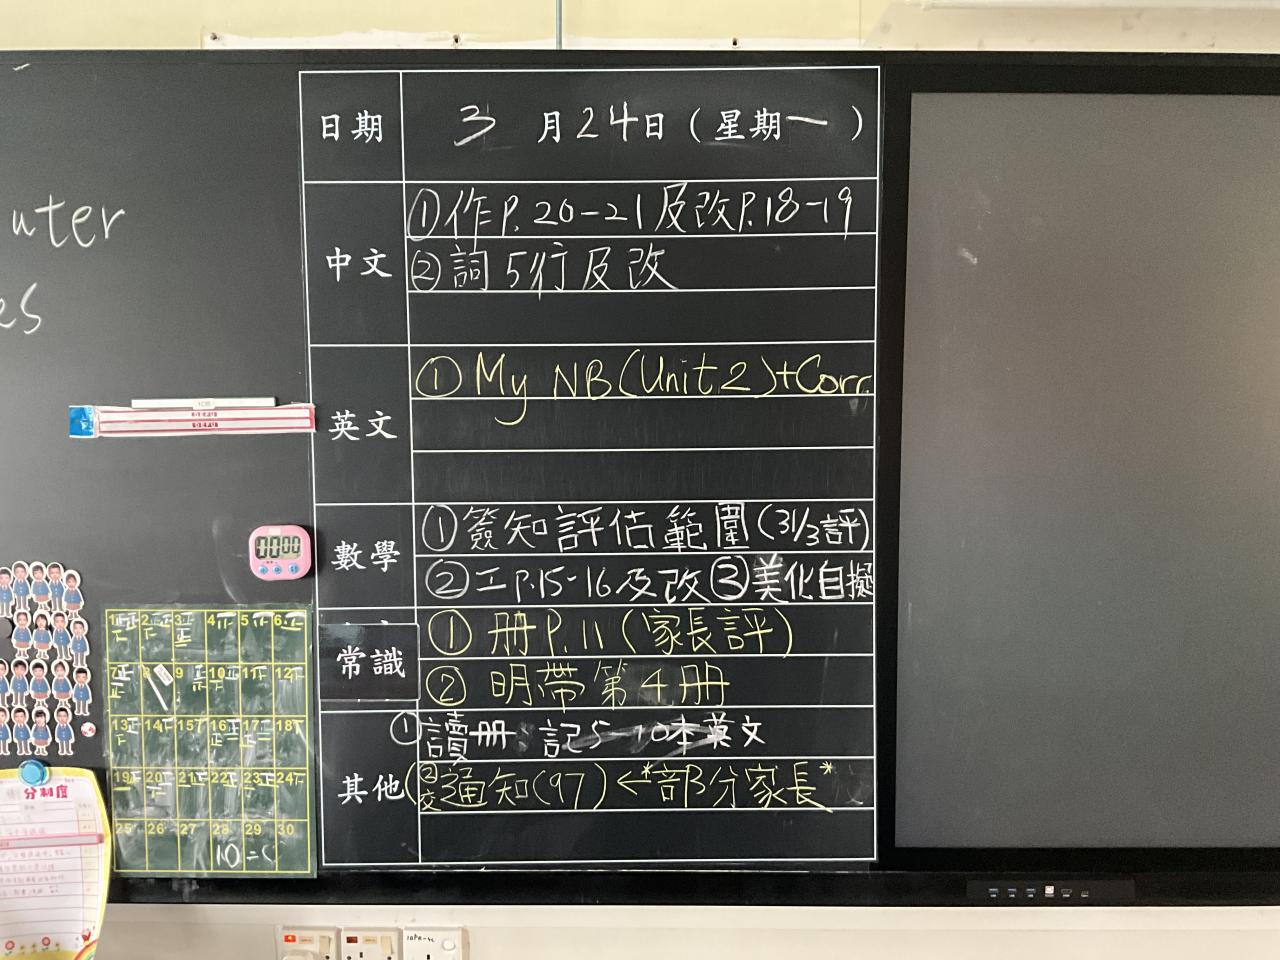 日期 3月24日(星期一)
中文 ①作P.20-21及改P.18-19
②詞5行及改
英文 ①My NB(Unit2)+Corr.
數學 ①簽知評估範圍(31/3評)
②工P.15-16及改③美化自擬
常識 ①册P.11(家長評)
②明帶第4册
其他 ①讀册:記5-10本英文
②交通知(97)←*部分家長*
uter
es
00:00
1 2 3 4 5 6
7 8 9 10 11 12
13 14 15 16 17 18
19 20 21 22 23 24
25 26 27 28 29 30
10=
分制度